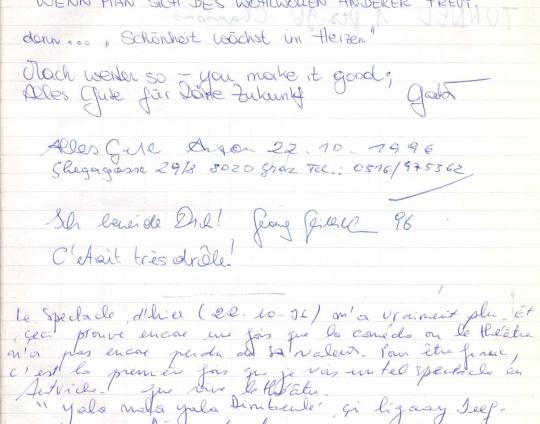 WENN MAN SICH DES WOHLWOLLEN ANDERER FREUT,
dann... „Schönheit wächst im "Herzen"
Mach weiter so – you make it good;
Alles Gute für Deine Zukunft
Alles Gute Anton 22.10.1996
Ghegagasse 29/8 8020 Graz Tel.: 0316/975362
Ich beneide Dich! Georg 96
C'était très drôle!
Le Spectacle d'hier (22-10-96) m'a vraiment plu. Et
ceci prouve encore une fois que la comédie ou le théâtre
n'a pas encore perdu de sa valeur. Pour être franc,
c'est la première fois que je vois un tel spectacle en
Autriche. que vive le théâtre.
" Yala nala yala